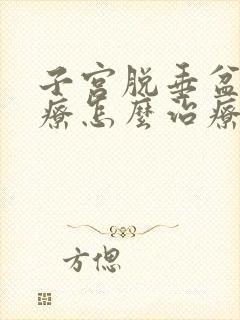 子宫脱垂盆
疗怎麽治疗
方偲